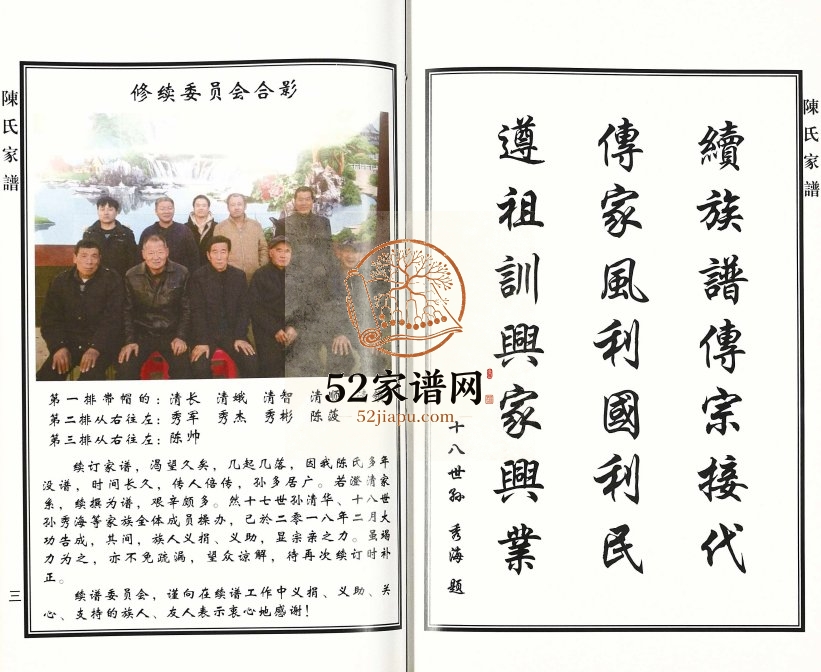 陳氏家譜
修续委员会合影
第一排带帽的：清长 清娥 清智 清
第二排从右往左：秀军 秀杰 秀彬 陈菠
第三排从右往左：陈帅
续订家谱，渴望久矣，几起几落，因我陈氏多年
没谱，时间长久，传人倍传，孙多居广。若澄清家
系，续撰为谱，艰辛颇多。然十七世孙清华、十八世
孙秀海等家族全体成员操办，已於二零一八年二月大
功告成，其间，族人义捐、义助，显宗亲之力。虽竭
力为之，亦不免疏漏，望众谅解，待再次续订时补
正。
续谱委员会，谨向在续谱工作中义捐、义助、关
心、支持的族人、友人表示衷心地感谢！
三
52家谱网
52jiapu.com
陳氏家譜
續族譜傳宗接代
傳家風利國利民
遵祖訓興家興業
十八世孙 秀海 题